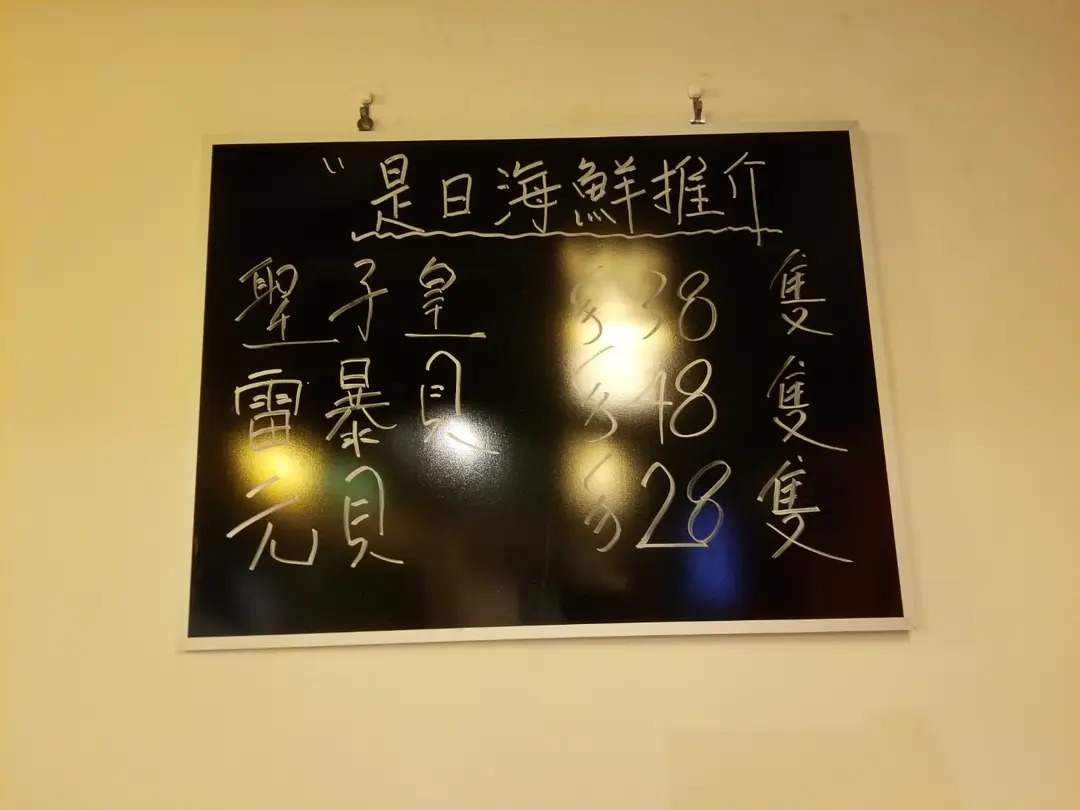 "是日海鮮推介
聖子皇 $38 隻
雷暴貝 $48 隻
元貝 $28 隻